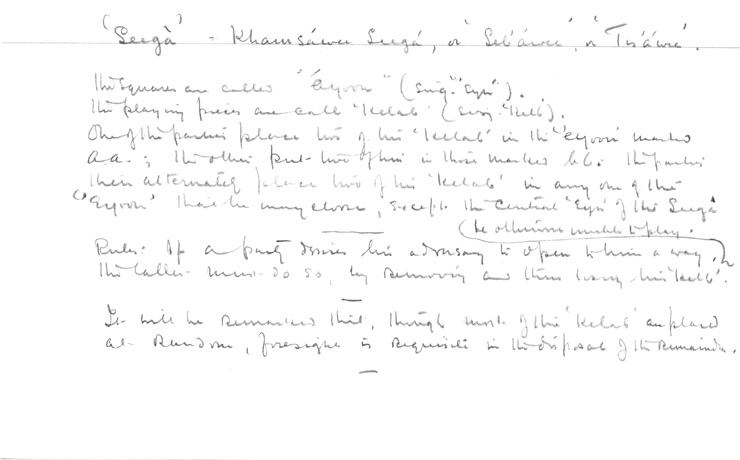 'Seegà' - Khamsáwee Seegá, or 'Seb'áwee', or 'Tis'áwee'.
The squares are called "'eyoon" (sing. "'eyn").
The playing pieces are call 'kelab' (sing. 'kelb').
One of the parties place two of his 'kelab' in the 'eyoon' marked
a a. ; the other put two of his in those marked b b : the parties
then alternately place two of his 'kelab' in any one of the
"'Eyoon' that he may choose, except the central 'eyn' of the Seegà
(be otherwise unable to play.
Rules. If a party desires his adversary to open to him a way,
the latter must do so, by removing and thus losing his 'kelb'.
It will be remarked that, though most of the 'kelab' are placed
at random, foresight is requisite in the disposal of the remainder.